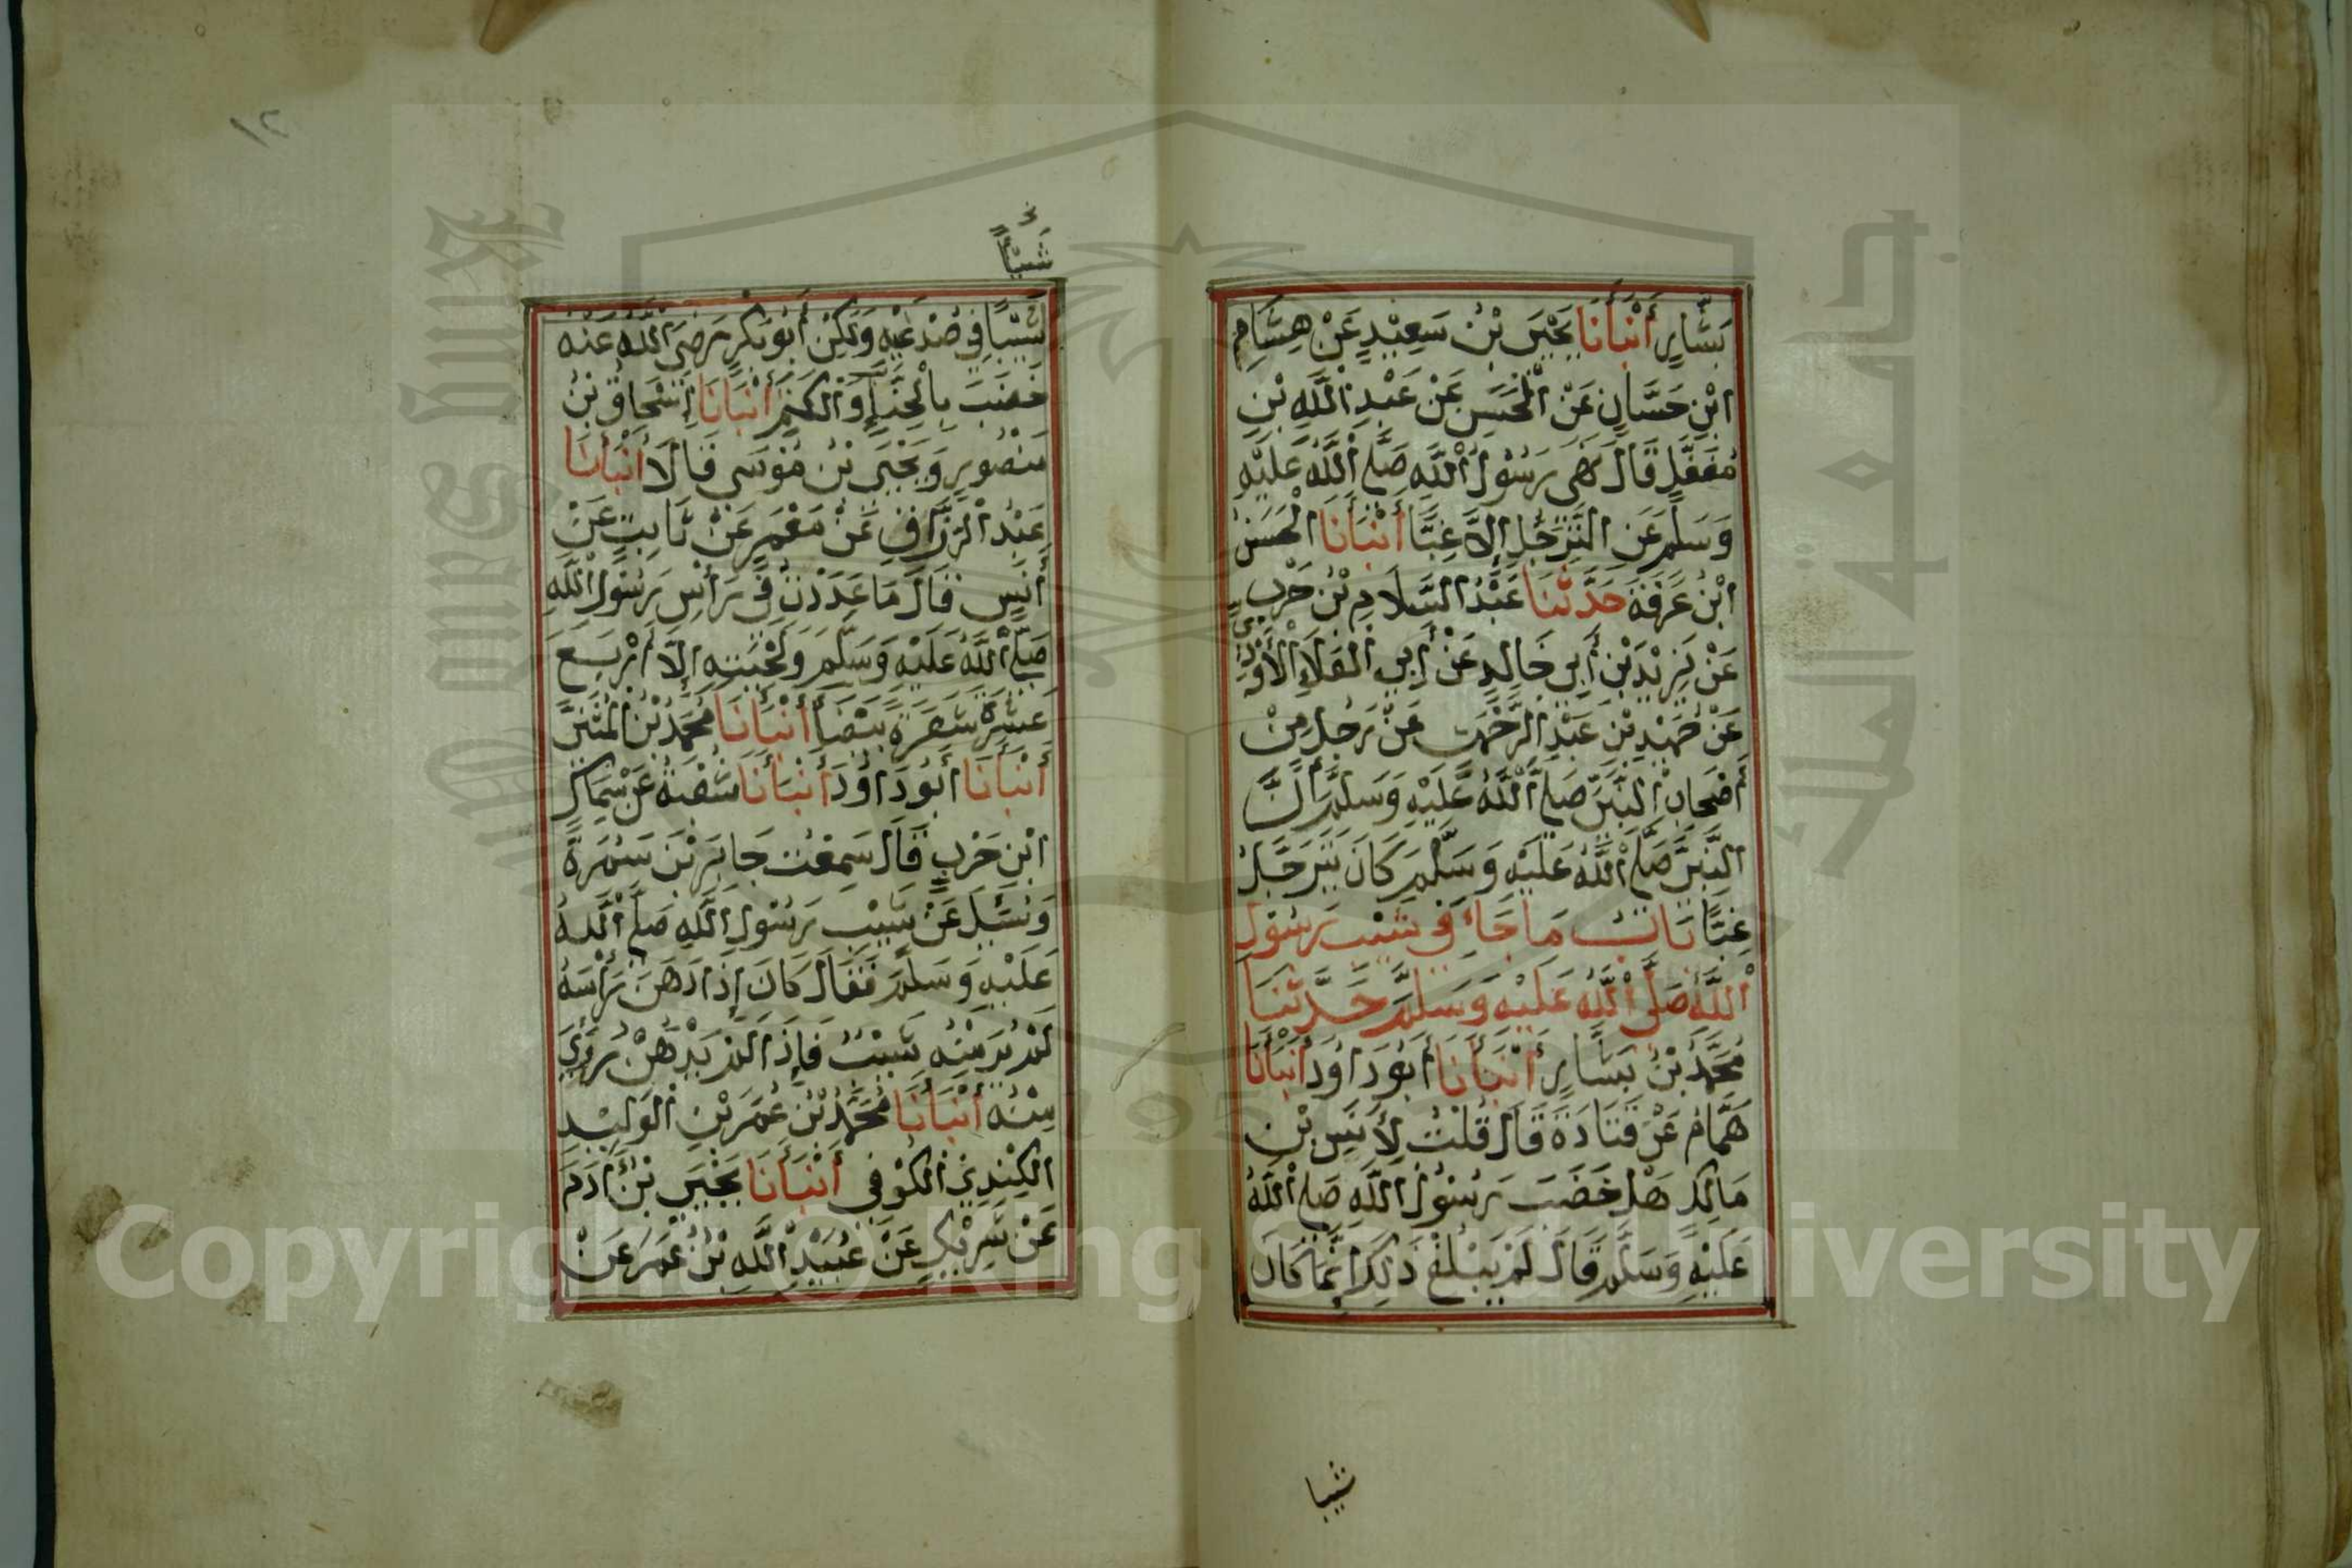 بَشَّارٍ أَنْبَأَنَا يَحْيَى بْنُ سَعِيْدٍ عَنْ هِشَامِ
ابْنِ حَسَّانٍ عَنْ الْحَسَنِ عَنْ عَبْدِ اللَّهِ بْنِ
مُغَفَّلٍ قَالَ نَهَى رَسُوْلُ اللَّهِ صَلَّى اللَّهُ عَلَيْهِ
وَسَلَّمَ عَنِ التَّرَجُّلِ إِلَّا غِبًّا أَنْبَأَنَا الْحَسَنُ
ابْنُ عَرَفَةَ حَدَّثَنَا عَبْدُ السَّلَامِ بْنُ حَرْبٍ
عَنْ يَزِيْدَ بْنِ أَبِي خَالِدٍ عَنْ أَبِي الْعَلَاءِ الْأَوْدِيِّ
عَنْ حُمَيْدِ بْنِ عَبْدِ الرَّحْمٰنِ عَنْ رَجُلٍ مِنْ
أَصْحَابِ النَّبِيِّ صَلَّى اللَّهُ عَلَيْهِ وَسَلَّمَ أَنَّ
النَّبِيَّ صَلَّى اللَّهُ عَلَيْهِ وَسَلَّمَ كَانَ يَتَرَجَّلُ
غِبًّا بَابُ مَا جَاءَ فِي شَيْبِ رَسُوْلِ
اللَّهِ صَلَّى اللَّهُ عَلَيْهِ وَسَلَّمَ حَدَّثَنَا
مُحَمَّدُ بْنُ بَشَّارٍ أَنْبَأَنَا أَبُو دَاوُدَ أَنْبَأَنَا
هَمَّامٌ عَنْ قَتَادَةَ قَالَ قُلْتُ لِأَنَسِ بْنِ
مَالِكٍ هَلْ خَضَبَ رَسُوْلُ اللَّهِ صَلَّى اللَّهُ
عَلَيْهِ وَسَلَّمَ قَالَ لَمْ يَبْلُغْ ذَلِكَ إِنَّمَا كَانَ
شيبا
١٢
شَيْئًا
شَيْبًا فِي صُدْغَيْهِ وَلَكِنْ أَبُو بَكْرٍ رَضِيَ اللَّهُ عَنْهُ
خَضَبَ بِالْحِنَّاءِ وَالْكَتَمِ أَنْبَأَنَا إِسْحَاقُ بْنُ
مَنْصُورٍ وَيَحْيَى بْنُ مُوْسَى قَالَا أَنْبَأَنَا
عَبْدُ الرَّزَّاقِ عَنْ مَعْمَرٍ عَنْ ثَابِتٍ عَنْ
أَنَسٍ قَالَ مَا عَدَدْتُ فِي رَأْسِ رَسُوْلِ اللَّهِ
صَلَّى اللَّهُ عَلَيْهِ وَسَلَّمَ وَلِحْيَتِهِ إِلَّا أَرْبَعَ
عَشْرَةَ شَعْرَةً بَيْضَاءَ أَنْبَأَنَا مُحَمَّدُ بْنُ الْمُثَنَّى
أَنْبَأَنَا أَبُو دَاوُدَ أَنْبَأَنَا شُعْبَةُ عَنْ سِمَاكِ
ابْنِ حَرْبٍ قَالَ سَمِعْتُ جَابِرَ بْنَ سَمُرَةَ
وَسُئِلَ عَنْ شَيْبِ رَسُوْلِ اللَّهِ صَلَّى اللَّهُ
عَلَيْهِ وَسَلَّمَ فَقَالَ كَانَ إِذَا دَهَنَ رَأْسَهُ
لَمْ يُرَ مِنْهُ شَيْبٌ فَإِذَا لَمْ يَدْهُنْ رُؤِيَ
مِنْهُ أَنْبَأَنَا مُحَمَّدُ بْنُ عُمَرَ بْنِ الْوَلِيْدِ
الْكِنْدِيُّ الْكُوْفِي أَنْبَأَنَا يَحْيَى بْنُ آدَمَ
عَنْ شَرِيْكٍ عَنْ عُبَيْدِ اللَّهِ بْنِ عُمَرَ عَنْ
Copyright © King Saud University
1957